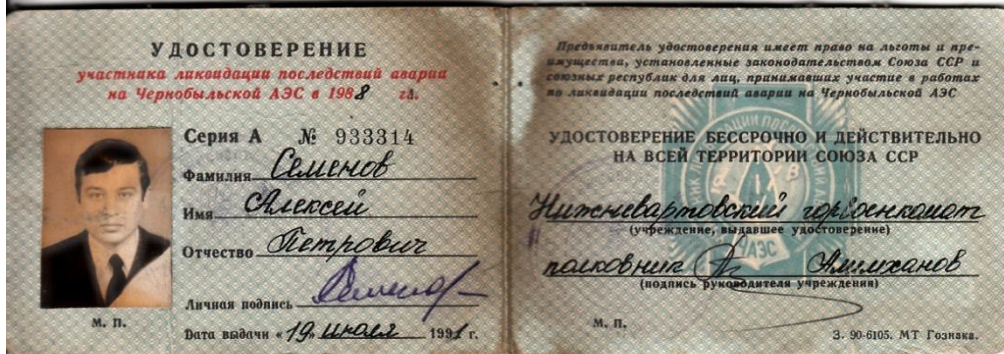 УДОСТОВЕРЕНИЕ
участника ликвидации последствий аварии
на Чернобыльской АЭС в 1988 г.
Серия А № 933314
Фамилия Семенов
Имя Алексей
Отчество Петрович
Личная подпись Семенов
М. П.
Дата выдачи «19» июля 1991 г.
Предъявитель удостоверения имеет право на льготы и пре-
имущества, установленные законодательством Союза ССР и
союзных республик для лиц, принимавших участие в работах
по ликвидации последствий аварии на Чернобыльской АЭС
УДОСТОВЕРЕНИЕ БЕССРОЧНО И ДЕЙСТВИТЕЛЬНО
НА ВСЕЙ ТЕРРИТОРИИ СОЮЗА ССР
Нижневартовский горвоенкомат
(учреждение, выдавшее удостоверение)
полковник Алимханов
(подпись руководителя учреждения)
М. П.
З. 90-6105. МТ Гознака.